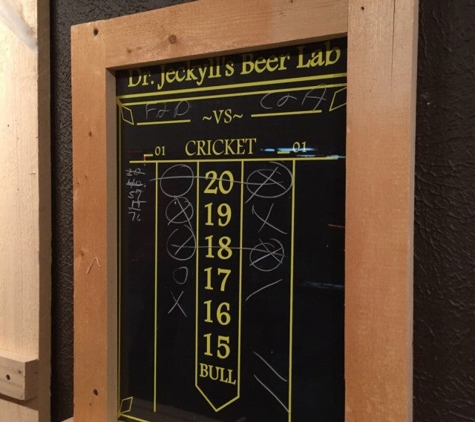 Dr. Jeckyll's Beer Lab
~VS~
01 CRICKET 01
20
19
18
17
16
15
BULL